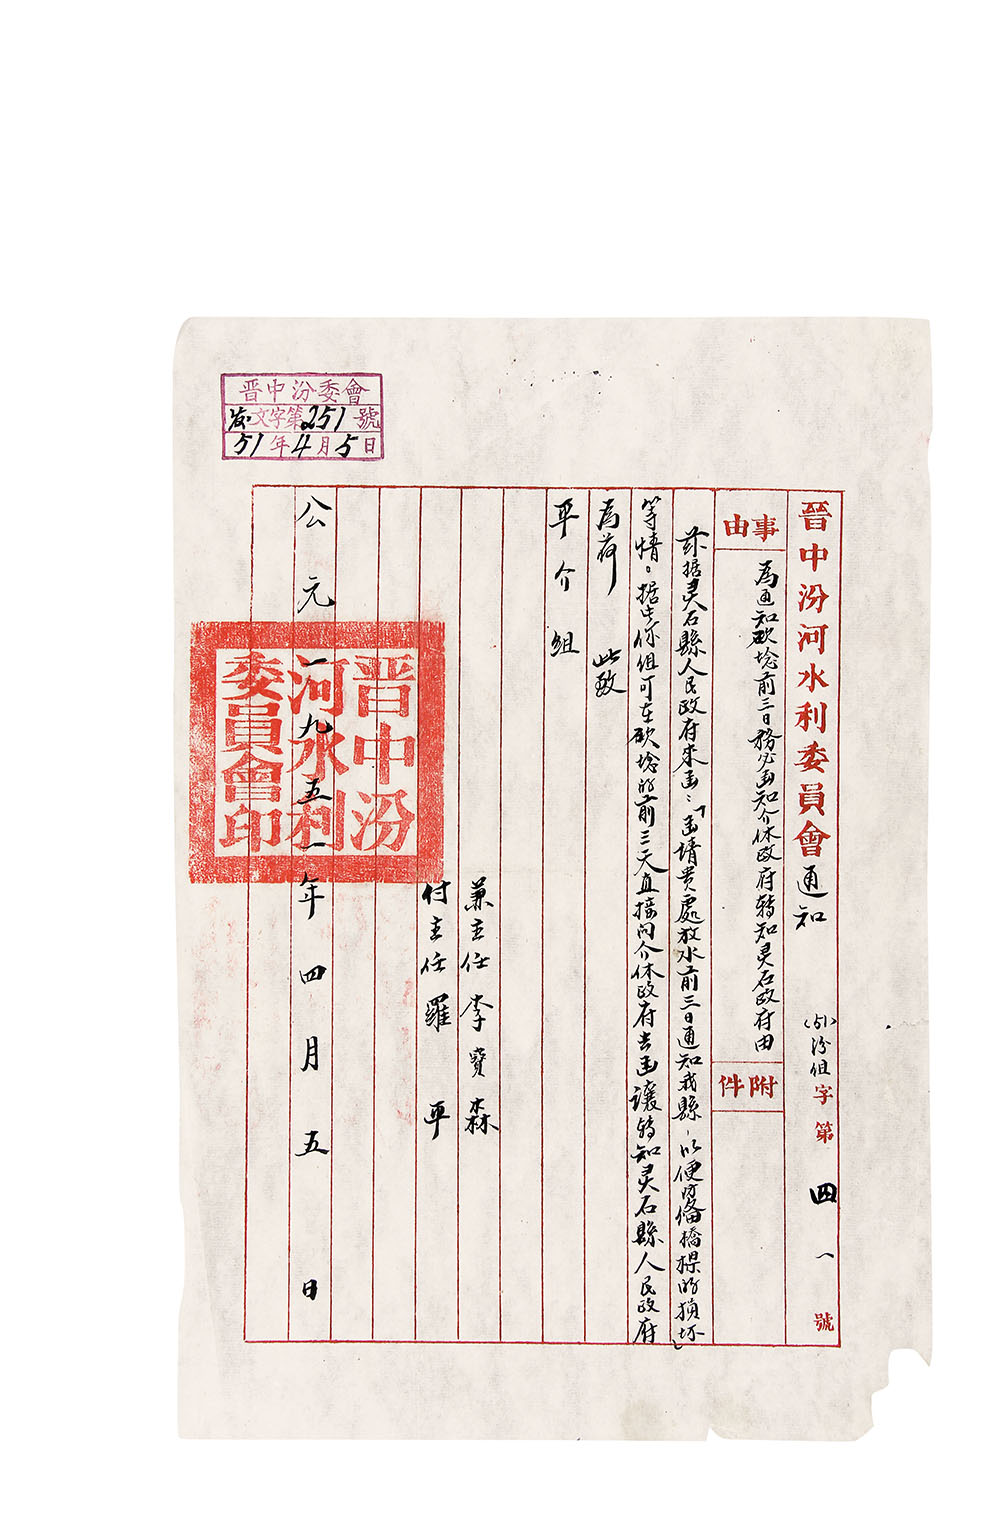 晋中汾委會
发文字第251號
51年4月5日
晉中汾河水利委員會通知
(51)汾组字第四一號
事由
為通知砍埝前三日務必函知介休政府轉知灵石政府由
附件
茲据灵石縣人民政府来函：「函請貴處放水前三日通知我縣，以便防备橋樑的損坏」
等情。据此你组可在砍埝的前三天直接向介休政府去函讓转知灵石縣人民政府
為荷 此致
平介組
兼主任李寶森
付主任羅平
公元一九五一年四月五日
晋中汾河水利委員會印